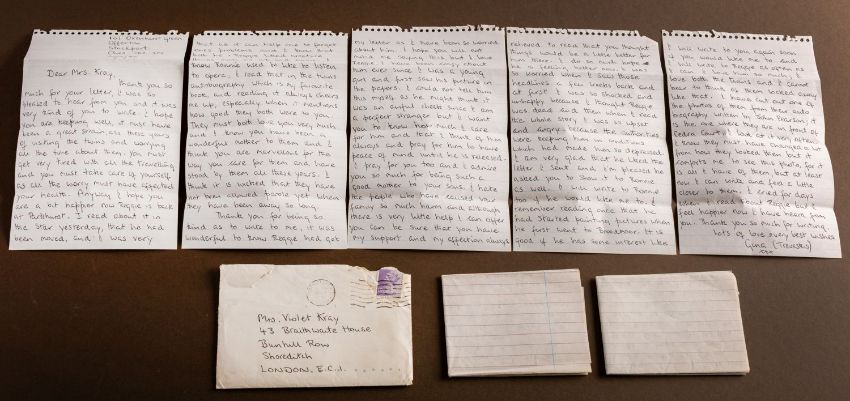 Offerton
Stockport
Dear Mrs Kray,
Thank you so
much for your letter, I was so
pleased to hear from you and it was
very kind of you to write. I hope
you are keeping well, it must have
been a great strain, all these years
of visiting the twins and worrying
all the time about them. You must
get very tired with all the travelling
and you must take care of yourself
as all the worry must have affected
your health. Anyway I hope you
are a bit happier now Reggie is back
at Parkhurst. I read about it in
the Star yesterday, that he had
been moved, and I was very
that as it can help one to forget
ones problems and I know that
know Ronnie used to like to listen
to opera, I read that in the twins
autobiography which is my favourite
book and reading it always cheers
me up, especially when it mentions
how good they both were to you.
They must both love you very much
and I know you have been a
wonderful mother to them and I
think you are marvellous for the
way you care for them and have
stood by them all these years. I
think it is wicked that they have
not been allowed home yet when
they have been away so long.
Thank you for being so
kind as to write to me, it was
wonderful to know Reggie had got
my letter as I have been so worried
about him. I hope you will not
mind me saying this but I love
Reggie & have been crazy about
him ever since I was a young
girl and first saw his picture in
the papers. I could not tell him
this myself as he might think it
was an awful cheek since I am
a perfect stranger but I want
you to know how much I care
for him and that I think of him
always and pray for him to have
peace of mind until he is released.
I pray for you too and I admire
you so much for being such a
good mother to your sons. I hate
the people who have caused your
family so much harm and although
there is very little help I can offer
you can be sure that you have
my support and my affection always
relieved to read that you thought
things would be a little better for
him there. I do so much hope
he is feeling better now. I was
so worried when I saw those
headlines a few weeks back and
at first I was so shocked and
unhappy because I thought Reggie
was dead and then when I read
the whole story I was so upset
and angry because the authorities
were keeping him in conditions
which had made him so depressed.
I am very glad that he liked the
letter I sent and I'm pleased he
asked you to show it to Ronnie
as well. I will write to Ronnie
too if he would like me to. I
remember reading once that he
had started painting pictures when
he first went to Broadmoor. It is
good if he has some interest like
I will write to you again soon
if you would like me to and
love both the twins and I cannot
bear to think of them locked away
like that. I have cut out one of
the photos of them in their auto
biography written by John Pearson, it
is the one where they are in front of
Pedra Court. I look at it very often.
from how he looked then but it
comforts me to see this photo, for it
is all I have of them, but at least
now I can write and feel a little
close to them. I cried for days
when I read about Reggie but I
feel happier now I have heard from
you. Thank you so much for writing.
Lots of love & very best wishes
Gina (Trevaskis)
xxx
Mrs. Violet Kray
43 Braithwaite House
Bunhill Row
Shoreditch
LONDON. E.C.1.